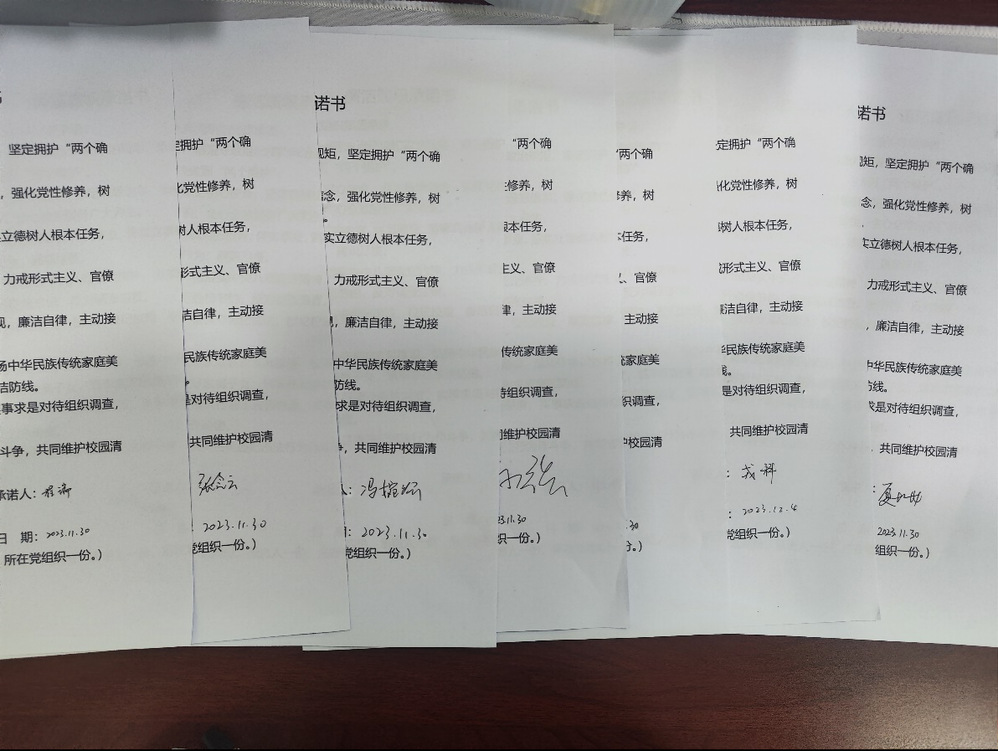 坚定拥护“两个确
，强化党性修养，树
立德树人根本任务，
力戒形式主义、官僚
，廉洁自律，主动接
中华民族传统家庭美
洁防线。
事求是对待组织调查，
斗争，共同维护校园清
承诺人：
日 期：2023.11.30
所在党组织一份。）
定拥护“两个确
化党性修养，树
树人根本任务，
形式主义、官僚
洁自律，主动接
民族传统家庭美
是对待组织调查，
共同维护校园清
张念云
：2023.11.30
党组织一份。）
诺书
规矩，坚定拥护“两个确
念，强化党性修养，树
实立德树人根本任务，
力戒形式主义、官僚
，廉洁自律，主动接
中华民族传统家庭美
防线。
求是对待组织调查，
，共同维护校园清
人：冯
：2023.11.30
党组织一份。）
“两个确
修养，树
根本任务，
主义、官僚
律，主动接
传统家庭美
待组织调查，
维护校园清
23.11.30
织一份。）
“两个确
养，树
任务，
、官僚
主动接
家庭美
织调查，
护校园清
.30
份。）
定拥护“两个确
化党性修养，树
树人根本任务，
形式主义、官僚
洁自律，主动接
民族传统家庭美
是对待组织调查，
共同维护校园清
：戎祥
：2023.12.4
党组织一份。）
诺书
规矩，坚定拥护“两个确
念，强化党性修养，树
实立德树人根本任务，
力戒形式主义、官僚
，廉洁自律，主动接
中华民族传统家庭美
防线。
求是对待组织调查，
，共同维护校园清
：夏
2023.11.30
组织一份。）